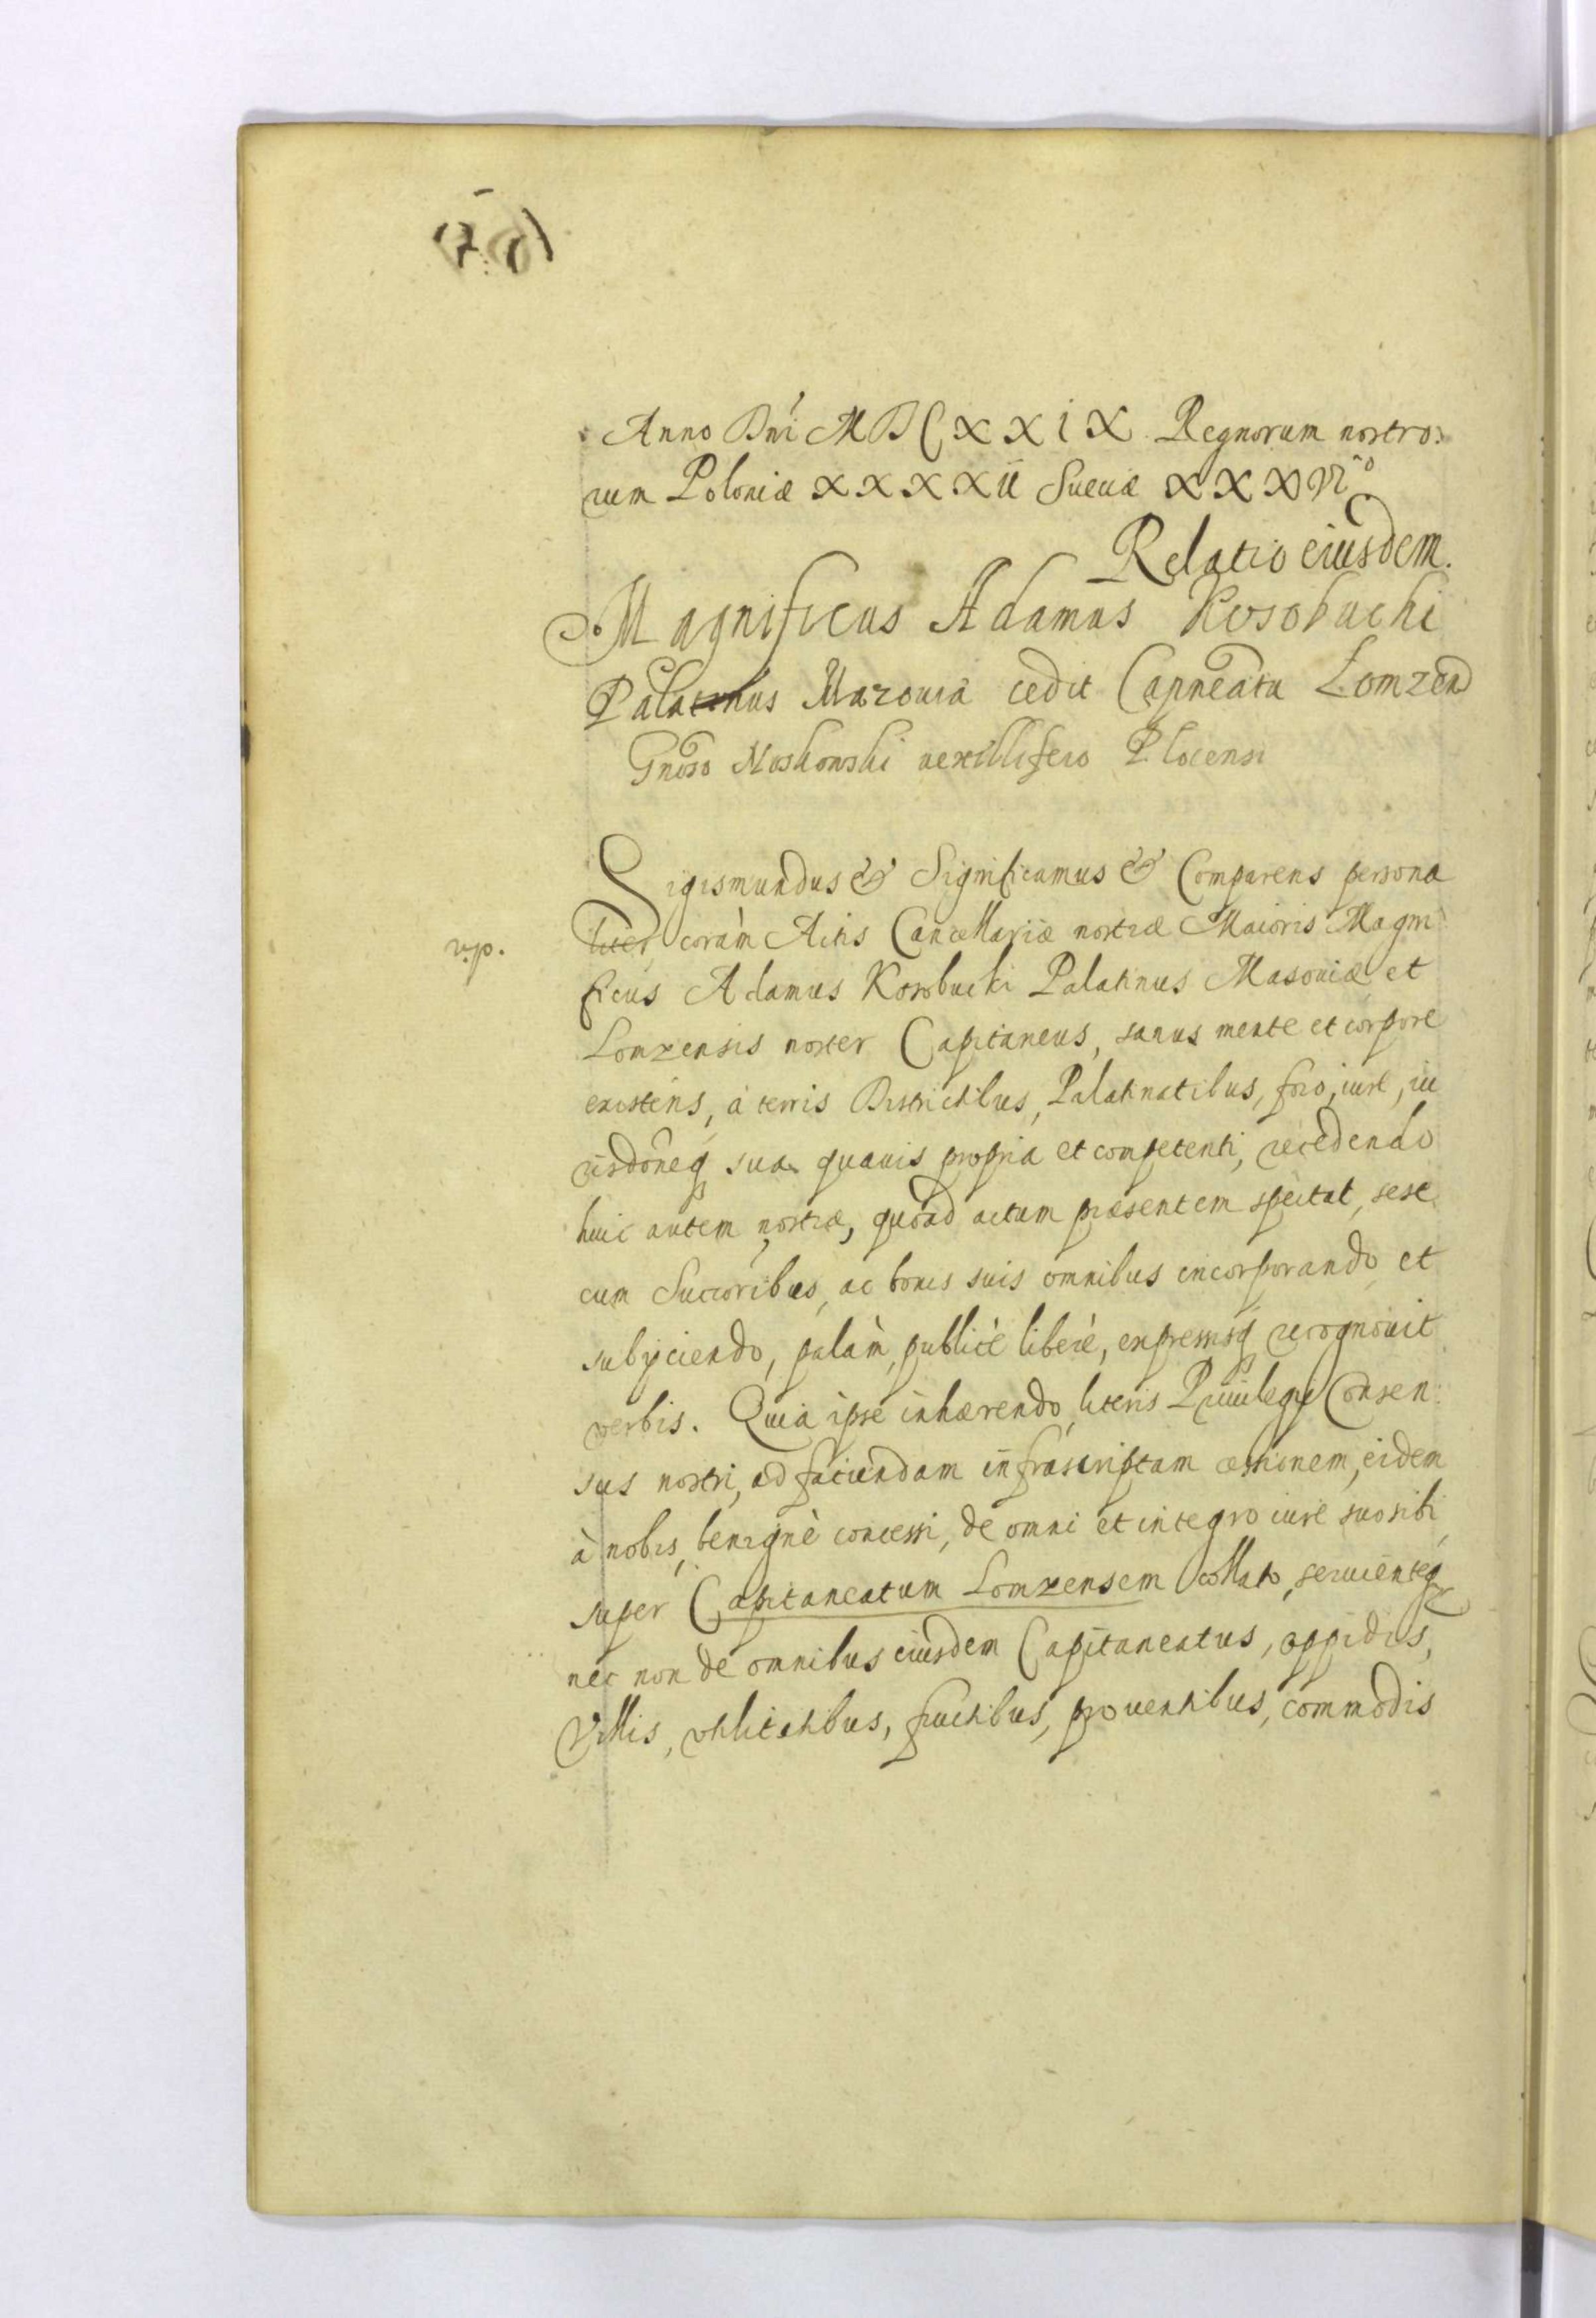 Anno Dnī MDCXXIX Regnorum nostro:
rum Poloniæ XXXXII Sueciæ XXXVIto
Relatio eiusdem.
Magnificus Adamus Kosobucki
Palatinus Mazouiæ cedit Capneatu Lomzen
Gnoso Noskowski vexillifero Plocensi
Sigismundus & Significamus & Comparens persona
v.p.
liter, coràm Actis Cancellariæ nostræ Maioris Magni
ficus Adamus Kosobucki Palatinus Masouiæ et
Lomzensis noster Capitaneus, sanus mente et corpore
existens, à terris Districtibus, Palatinatibus, foro, iure, iu
risdōneq sua quauis propria et competenti, recedendo
huic autem nostræ, quoad actum præsentem spectat, sese
cum Successoribus, ac bonis suis omnibus incorporando et
subijciendo, palàm, publicè liberè, expressisq recognouit
verbis. Quia ipse inhærendo literis Priuilegij Consen:
sus nostri, ad faciendam infrascriptam cessionem, eidem
à nobis, benignè concessi, de omni et integro iure suo sibi
super Capitaneatum Lomzensem collato, seruienteq
nec non de omnibus eiusdem Capitaneatus, oppidis,
Villis, vtilitatibus, fructibus, prouentibus, commodis